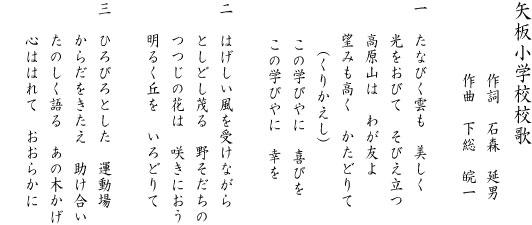 矢板小学校校歌
作詞 石森 延男
作曲 下総 皖一
一 たなびく雲も 美しく
光をおびて そびえ立つ
高原山は わが友よ
望みも高く かたどりて
(くりかえし)
この学びやに 喜びを
この学びやに 幸を
二 はげしい風を受けながら
としどし茂る 野そだちの
つつじの花は 咲きにおう
明るく丘を いろどりて
三 ひろびろとした 運動場
からだをきたえ 助け合い
たのしく語る あの木かげ
心ははれて おおらかに